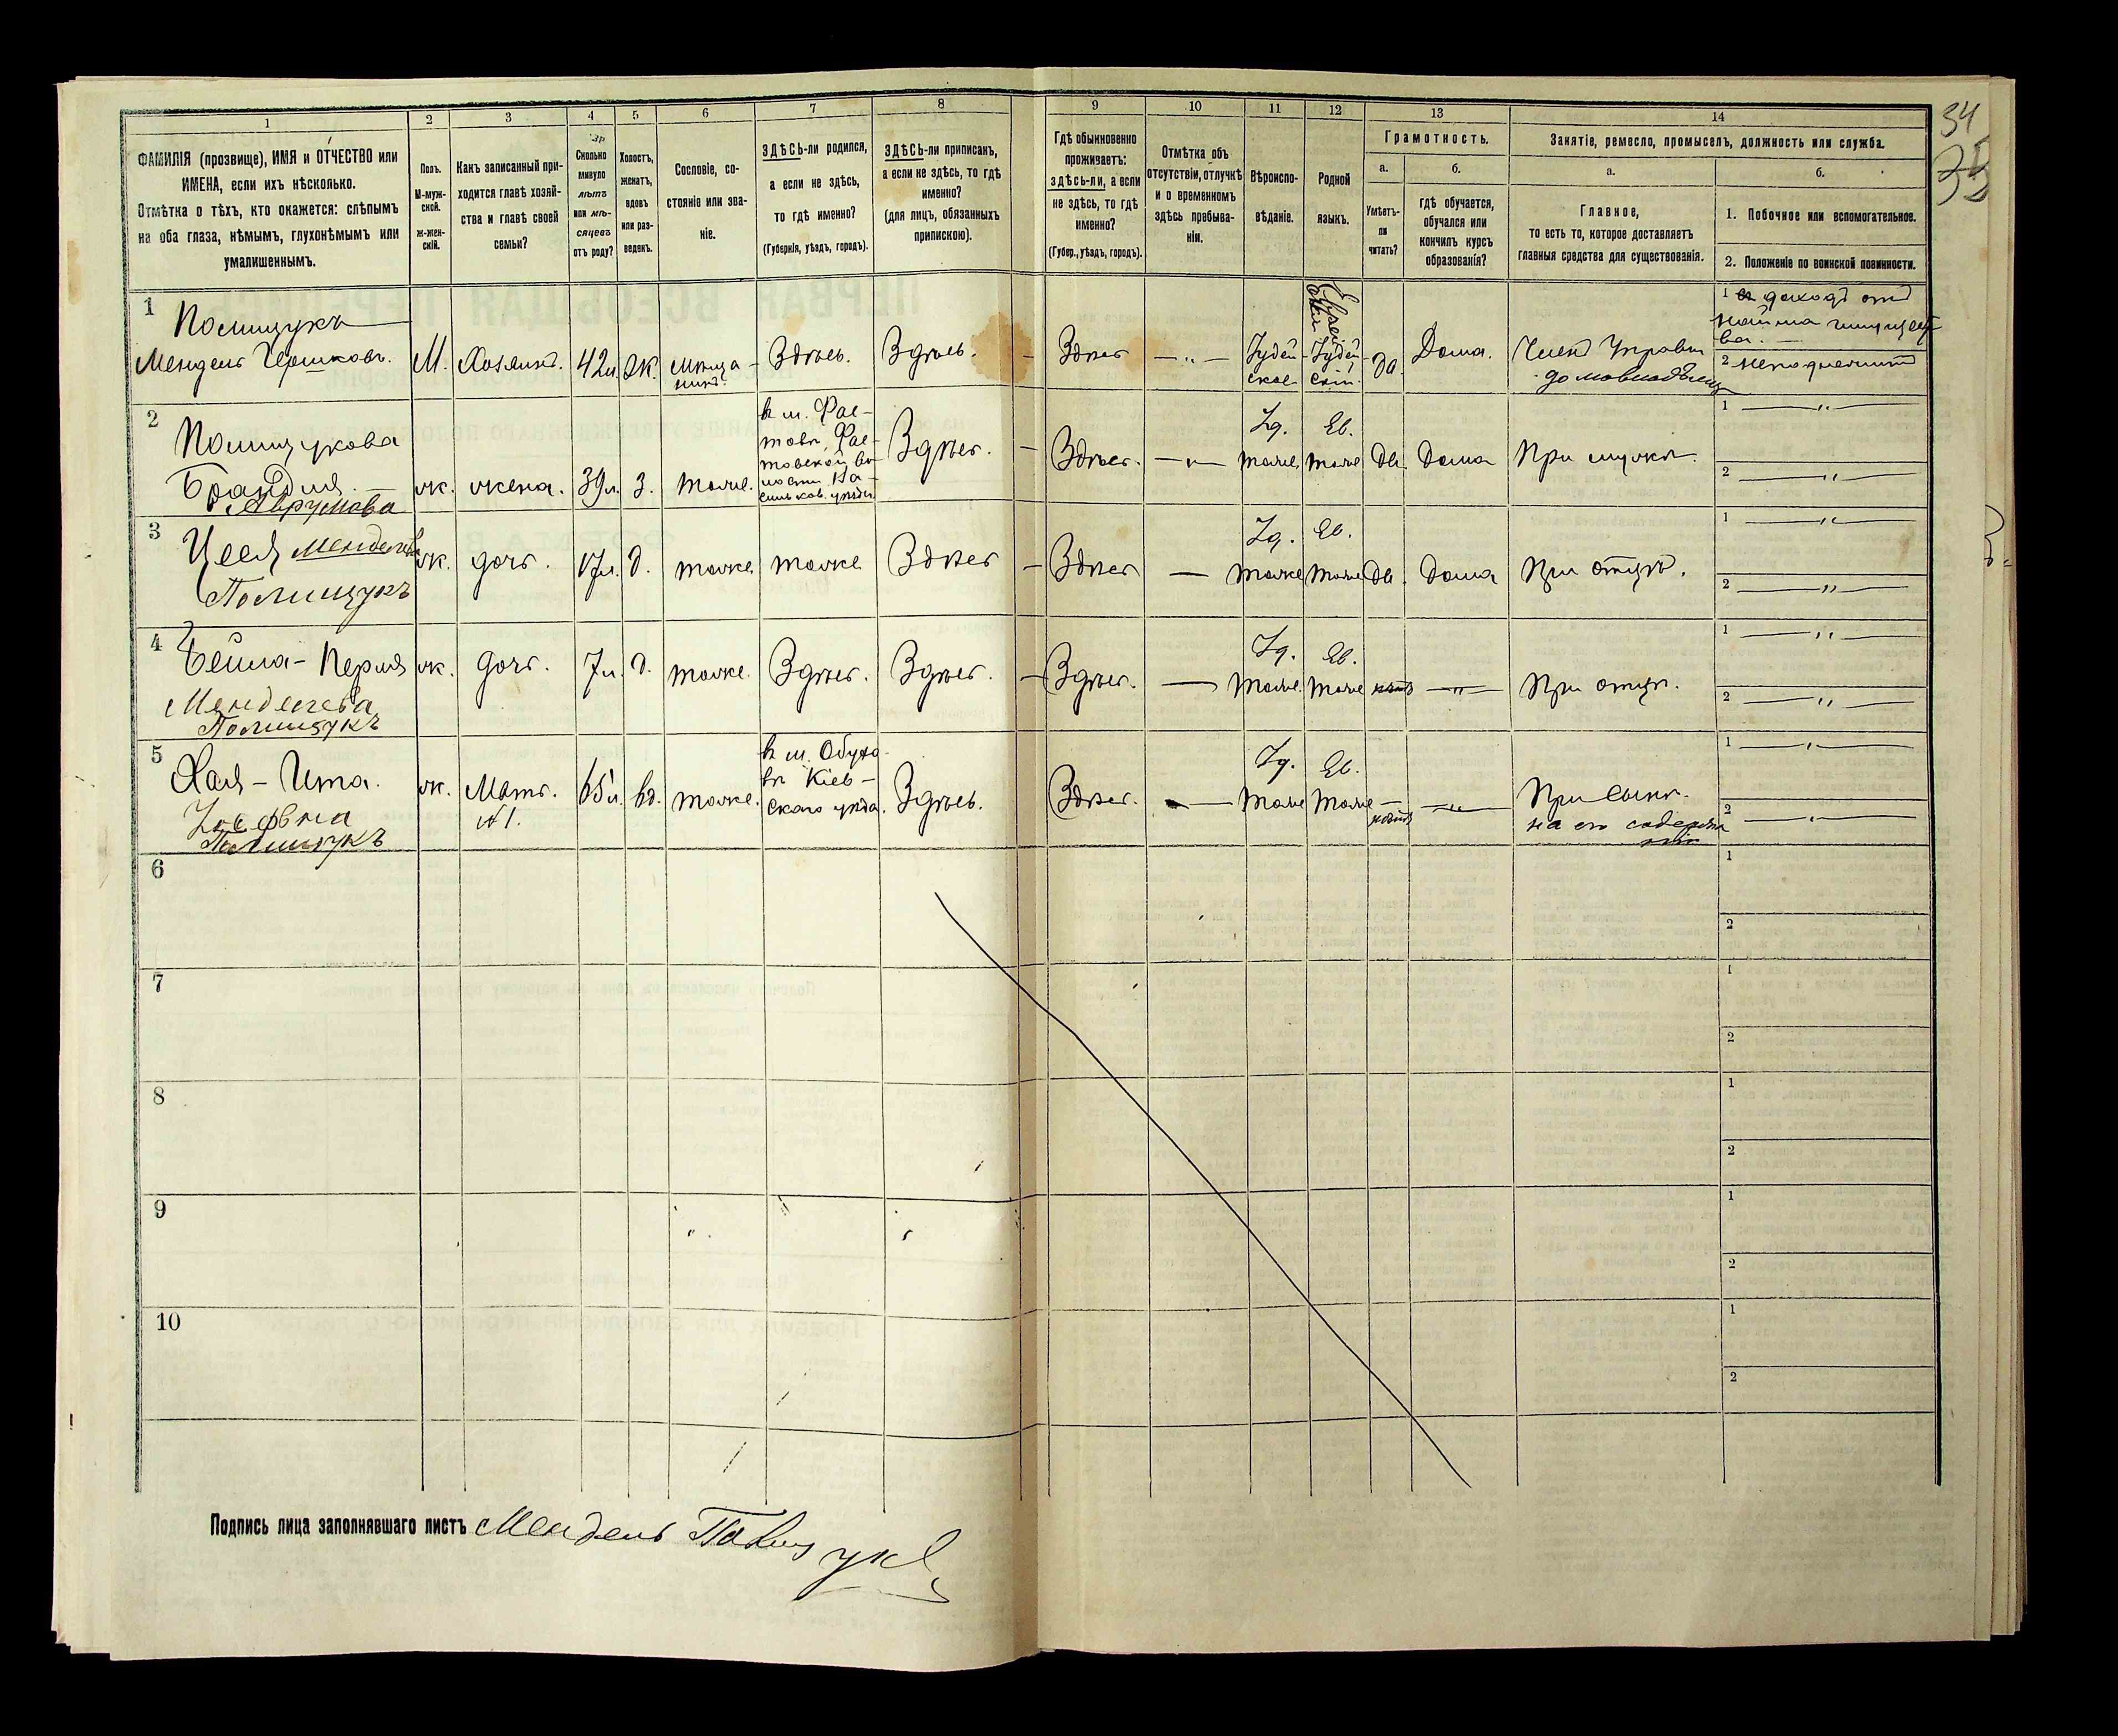 1
2
3
4
5
6
7
8
9
10
11
12
13
14
34
ФАМИЛІЯ (прозвище), ИМЯ и ОТЧЕСТВО или
ИМЕНА, если ихъ нѣсколько.
Отмѣтка о тѣхъ, кто окажется: слѣпымъ
на оба глаза, нѣмымъ, глухонѣмымъ или
умалишеннымъ.
Полъ.
М-муж-
ской.
Ж-жен-
скій.
Какъ записанный при-
ходится главѣ хозяй-
ства и главѣ своей
семьи?
Сколько
минуло
лѣтъ
или мѣ-
сяцевъ
отъ роду?
Холостъ,
женатъ,
вдовъ
или раз-
веденъ.
Сословіе, со-
стояніе или зва-
ніе.
ЗДѢСЬ-ли родился,
а если не здѣсь,
то гдѣ именно?
(Губернія, уѣздъ, городъ).
ЗДѢСЬ-ли приписанъ,
а если не здѣсь, то гдѣ
именно?
(для лицъ, обязанныхъ
припискою).
Гдѣ обыкновенно
проживаетъ:
здѣсь-ли, а если
не здѣсь, то гдѣ
именно?
(Губер., уѣздъ, городъ).
Отмѣтка объ
отсутствіи, отлучкѣ
и о временномъ
здѣсь пребыва-
ніи.
Вѣроиспо-
вѣданіе.
Родной
языкъ.
Грамотность.
а.
Умѣетъ-
ли
читать?
б.
гдѣ обучается,
обучался или
кончилъ курсъ
образованія?
Занятіе, ремесло, промыселъ, должность или служба.
а.
Главное,
то есть то, которое доставляетъ
главныя средства для существованія.
б.
1. Побочное или вспомогательное.
2. Положеніе по воинской повинности.
1
Полищукъ
Мендель Гершковъ.
М.
Хозяинъ.
42л.
Ж.
Мѣща-
нинъ.
Здѣсь.
Здѣсь.
Здѣсь
Іудей-
ское
Еврей
ский
Іудей-
скій.
да.
Дома.
Членъ Управы
домовладѣлец
1 доходъ отъ
найма имущест
ва.
2 неподлежитъ
2
Полищукова
Брандля
Аврумова
ж.
жена.
39л.
З.
тоже.
в м. Фас-
товѣ, Фас-
товской во-
лости Ва-
сильков. уѣзда
Здѣсь.
Здѣсь.
Іуд.
тоже
Ев.
тоже
да
дома
При мужѣ.
1
2
3
Цеся Менделева
Полищукъ
ж.
дочь.
17л.
д.
тоже
тоже
Здѣсь
Здѣсь
Іуд.
тоже
Ев.
тоже
да.
дома
При отцѣ.
1
2
4
Бейла-Перля
Менделева
Полищукъ
ж.
дочь.
7л.
д.
тоже.
Здѣсь.
Здѣсь.
Здѣсь.
Іуд.
тоже.
Ев.
тоже
нѣтъ
При отцѣ.
1
2
5
Хая-Ита.
Іосфовна
Полищукъ
ж.
Мать.
№1.
65л.
вд.
тоже.
в м. Обухо-
вѣ Кіев-
скаго уѣзда.
Здѣсь.
Здѣсь.
Іуд.
тоже
Ев.
тоже
нѣтъ
При сынѣ.
на его содержа
ніи
1
2
6
1
2
7
1
2
8
1
2
9
1
2
10
1
2
Подпись лица заполнявшаго листъ Мендель Полищукъ